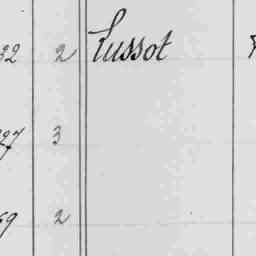 32 2 Lussot
27 3
69 2